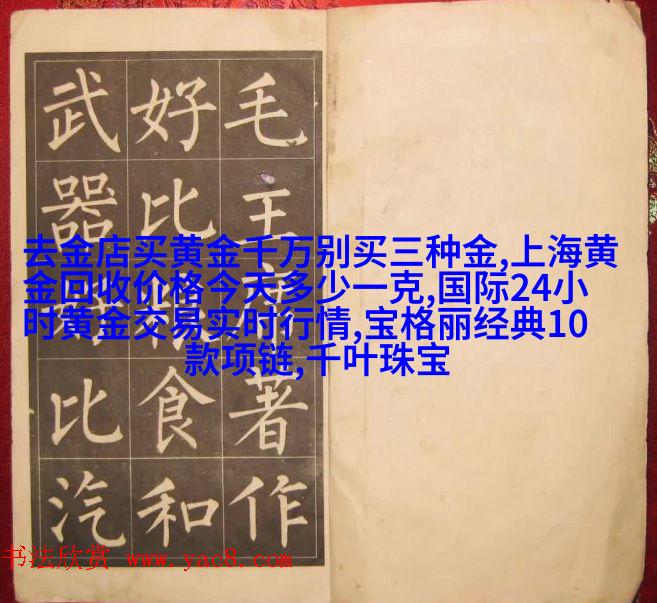 毛主席著作
好比粮食和
武器比汽
去金店买黄金千万别买三种金,上海黄
金回收价格今天多少一克,国际24小
时黄金交易实时行情,宝格丽经典10
款项链,千叶珠宝
书法欣赏 www.yac8.com